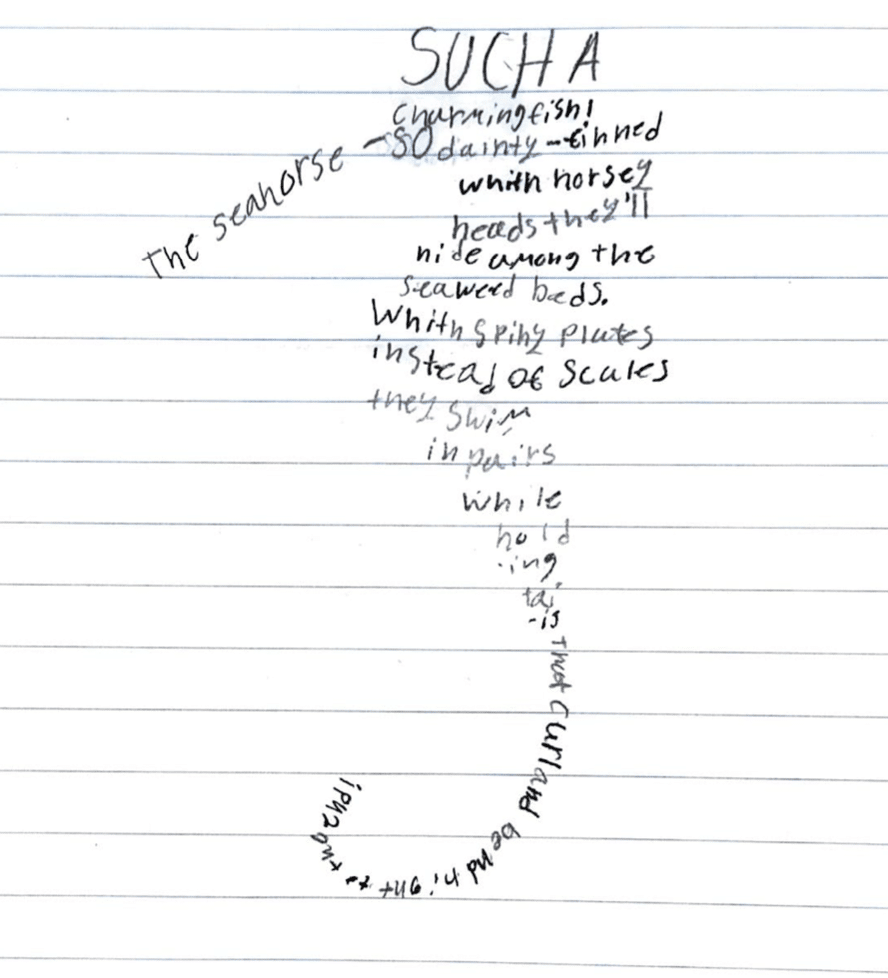 SUCH A
Charmingfish!
The seahorse -so dainty-finned
whith horsey
heads they'll
hide among the
seaweed beds.
Whith spiny plates
instead of scales
they swim
in pairs
while
hold
-ing
tai
-ls
that curl and bend right to the